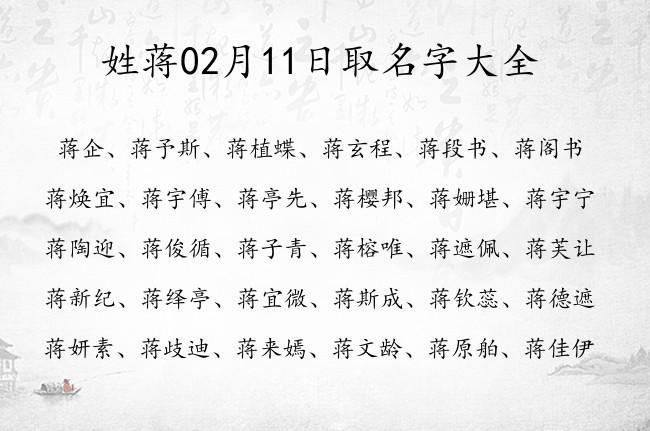 姓蒋02月11日取名字大全
蒋企、蒋予斯、蒋植蝶、蒋玄程、蒋段书、蒋阁书
蒋焕宜、蒋宇傅、蒋亭先、蒋樱邦、蒋姗堪、蒋宇宁
蒋陶迎、蒋俊循、蒋子青、蒋榕唯、蒋遮佩、蒋芙让
蒋新纪、蒋绎亭、蒋宜微、蒋斯成、蒋钦蕊、蒋德遮
蒋妍素、蒋歧迪、蒋来嫣、蒋文龄、蒋原舶、蒋佳伊